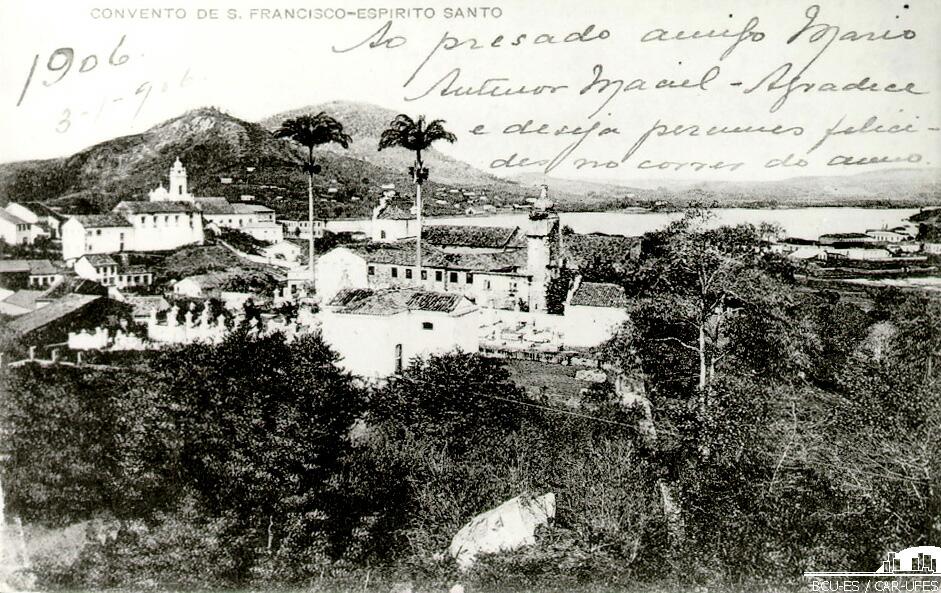 CONVENTO DE S. FRANCISCO-ESPIRITO SANTO
1906.
3-1-906
Ao presado amigo Mario
Antenor Maciel - Agradece
e deseja perennes felici-
des no correr do anno.
BCU-ES / CAR-UFES